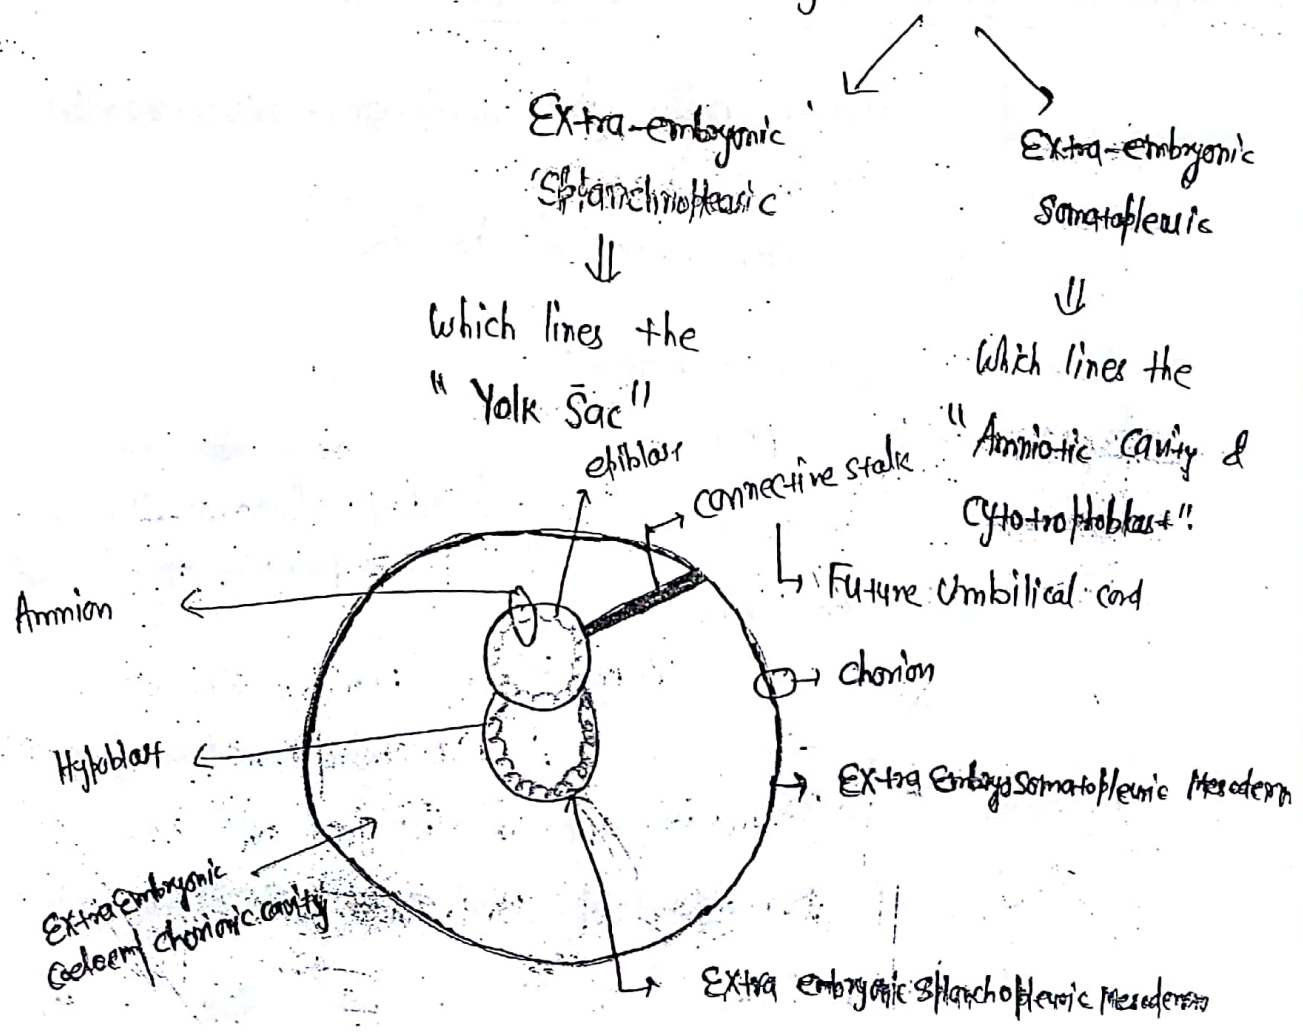 Extra-embryonic
"Splanchnopleuric
Which lines the
"Yolk Sac"
Extra-embryonic
Somatopleuric
Which lines the
"Amniotic Cavity &
Cytotrophoblast".
epiblast
connective stalk
Future Umbilical cord
Amnion
chorion
Hypoblast
Extra Embryo Somatopleuric Mesoderm
Extra Embryonic
Coeloem/chorionic cavity
Extra embryonic Splanchopleuric Mesoderm